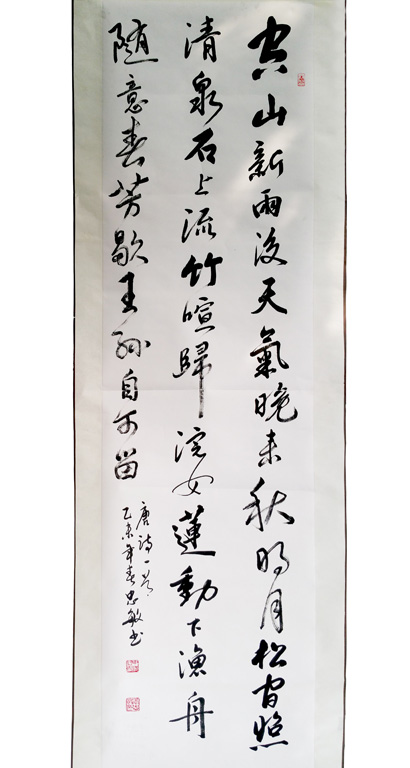 空山新雨後天氣晚来秋明月松间照
清泉石上流竹喧歸浣女蓮動下漁舟
随意春芳歇王孙自可留
唐诗一首
乙未年春忠敏书